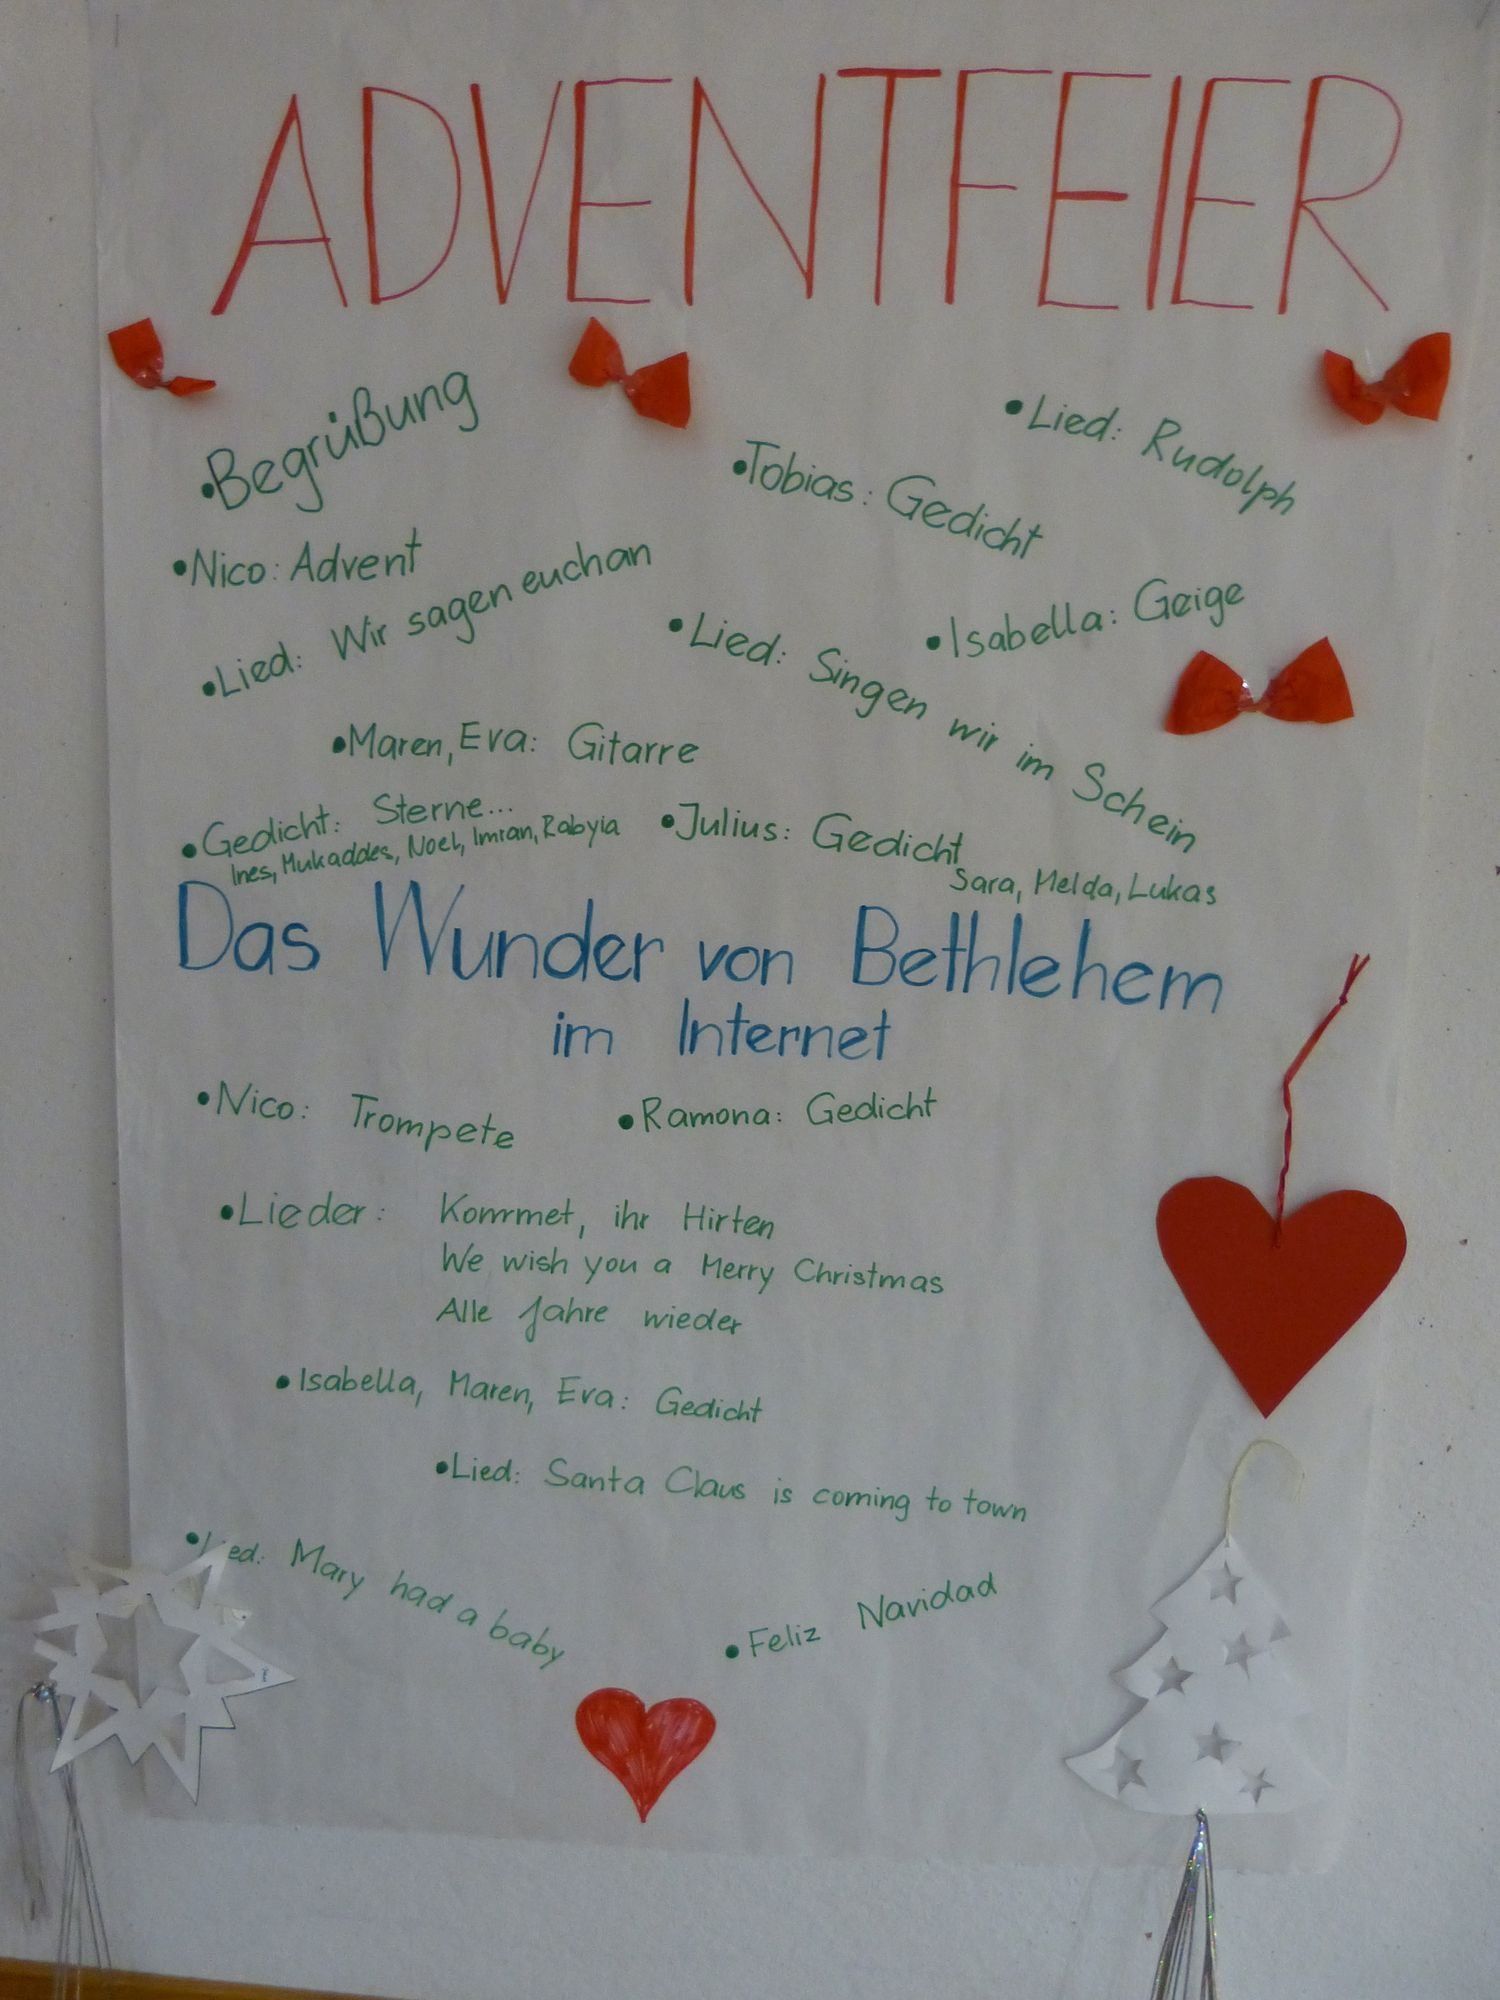 ADVENTFEIER
• Begrüßung
• Nico: Advent
• Lied: Wir sagen euch an
• Maren, Eva: Gitarre
• Gedicht: Sterne...
Ines, Mukaddes, Noel, Imran, Rabyia
• Lied: Rudolph
• Tobias: Gedicht
• Isabella: Geige
• Lied: Singen wir im Schein
• Julius: Gedicht
Sara, Melda, Lukas
Das Wunder von Bethlehem
im Internet
• Nico: Trompete
• Ramona: Gedicht
• Lieder: Kommet, ihr Hirten
We wish you a Merry Christmas
Alle Jahre wieder
• Isabella, Maren, Eva: Gedicht
• Lied: Santa Claus is coming to town
• Lied: Mary had a baby
• Feliz Navidad